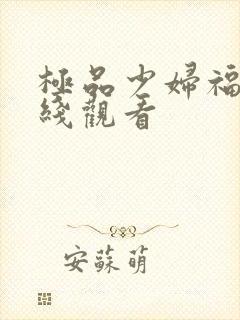 極品少婦福
綫觀看
安蘇萌